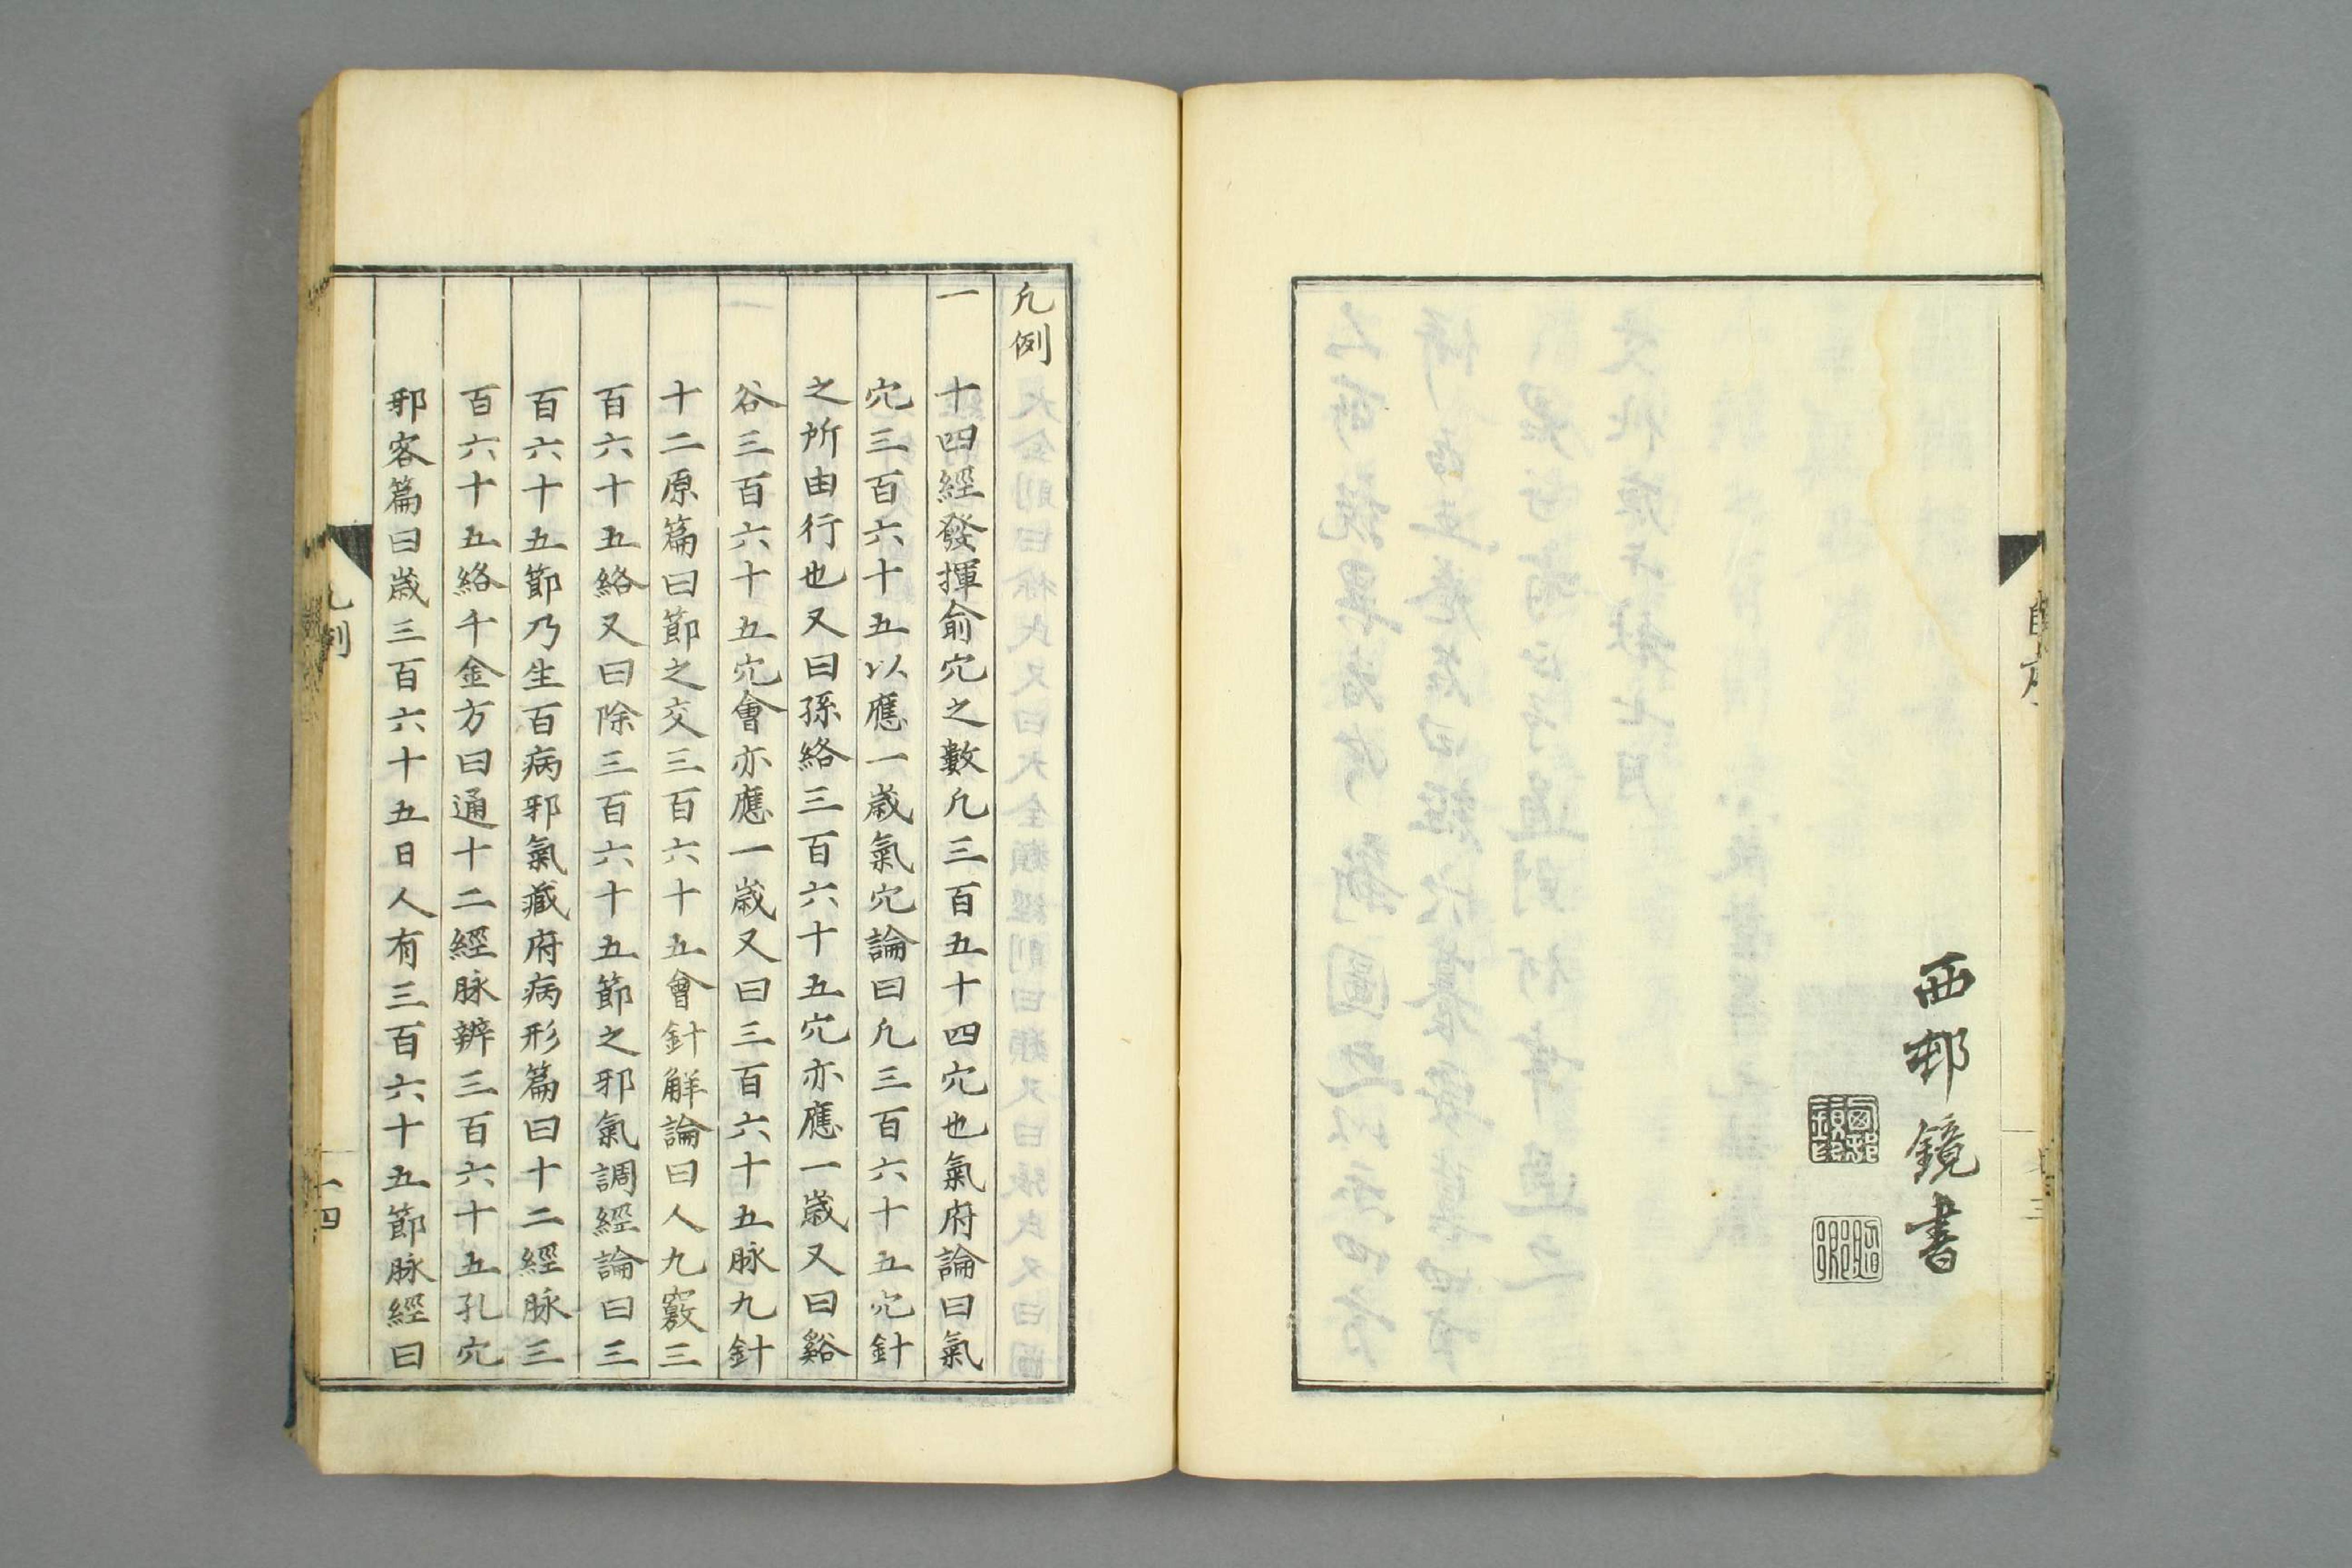 西邨鏡書
自序
三
凡例
一 十四經發揮俞穴之數凡三百五十四穴也氣府論曰氣
穴三百六十五以應一歳氣穴論曰凡三百六十五穴針
之所由行也又曰孫絡三百六十五穴亦應一歳又曰谿
谷三百六十五穴會亦應一歳又曰三百六十五脉九針
十二原篇曰節之交三百六十五會針解論曰人九竅三
百六十五絡又曰除三百六十五節之邪氣調經論曰三
百六十五節乃生百病邪氣藏府病形篇曰十二經脉三
百六十五絡千金方曰通十二經脉辨三百六十五孔穴
邪客篇曰歳三百六十五日人有三百六十五節脉經曰
凡例
四